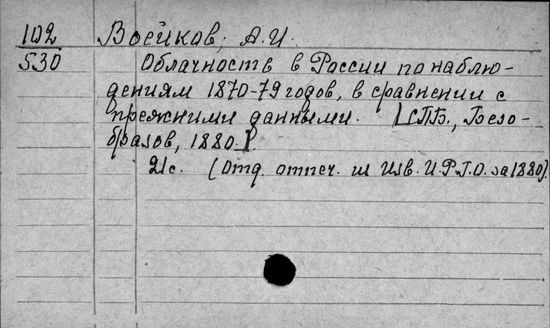 102 Воейков, А.И.
530 Облачность в России по наблю-
дениям 1870-79 годов, в сравнении с
прежними данными. [СПБ., Безо-
бразов, 1880.].
21с. (Отд. оттеч. из Изв. И.Р.Г.О. за 1880).